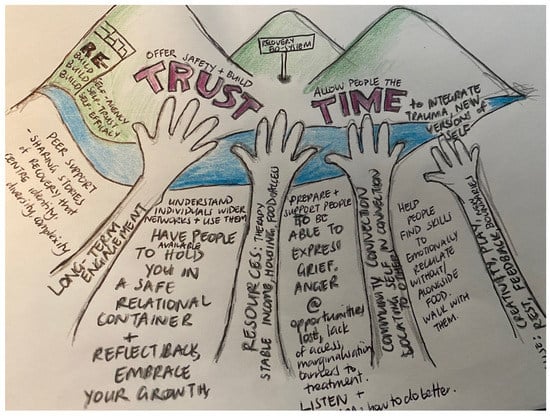 RECOVERY
ECO-SYSTEM
RE
BUILD SELF-AGENCY
BUILD SELF-TRUST
BUILD SELF EFFICACY
OFFER SAFETY + BUILD
TRUST
ALLOW PEOPLE THE
TIME
to INTEGRATE
TRAUMA, NEW
VERSIONS of
SELF
PEER SUPPORT
SHARING STORIES
of RECOVERY that
CENTRE identity,
diversity, complexity
LONG-TERM
ENGAGEMENT
UNDERSTAND
INDIVIDUALS WIDER
NETWORKS + USE THEM
HAVE PEOPLE
AVAILABLE
TO HOLD
YOU IN
A SAFE
RELATIONAL
CONTAINER
+
REFLECT BACK,
EMBRACE
YOUR GROWTH,
RESOURCES: THERAPY
STABLE INCOME, HOUSING, FOOD ACCESS
PREPARE +
SUPPORT PEOPLE
TO BE
ABLE TO
EXPRESS
GRIEF,
ANGER
@
opportunities
lost, lack
of access,
marginalisation
barriers to
treatment.
LISTEN +
how to do better.
COMMUNITY CONNECTION
LOCATING SELF IN CONNECTION
TO OTHERS
HELP
PEOPLE
FIND SKILLS
TO
EMOTIONALLY
REGULATE
WITHOUT/
ALONGSIDE
FOOD.
WALK WITH
THEM.
CREATIVITY, PLAY
REST, FEEDBACK, BOUNDARIES